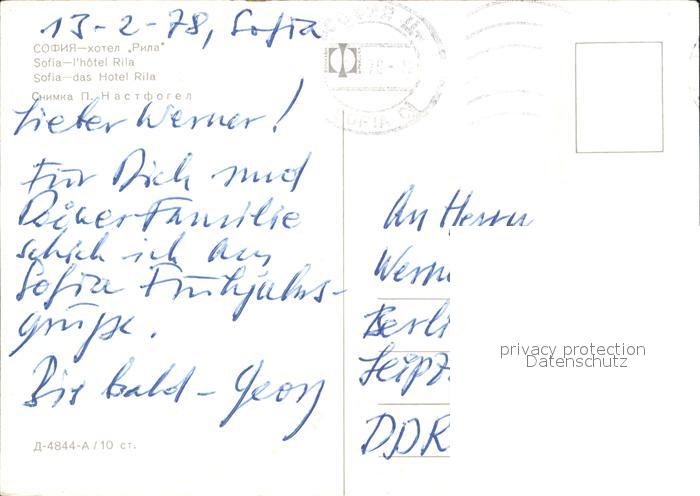 13-2-78, Sofia
СОФИЯ—хотел „Рила"
Sofia—l'hôtel Rila
Sofia—das Hotel Rila
Снимка П. Настфогел
Lieber Werner!
Für Dich und
Deiner Familie
schick ich aus
Sofia Frühjahrs-
grüße.
Bis bald – Georg
Д-4844-А/10 ст.
An Herrn
Werne
Berli
Leipz
DDR
privacy protection
Datenschutz